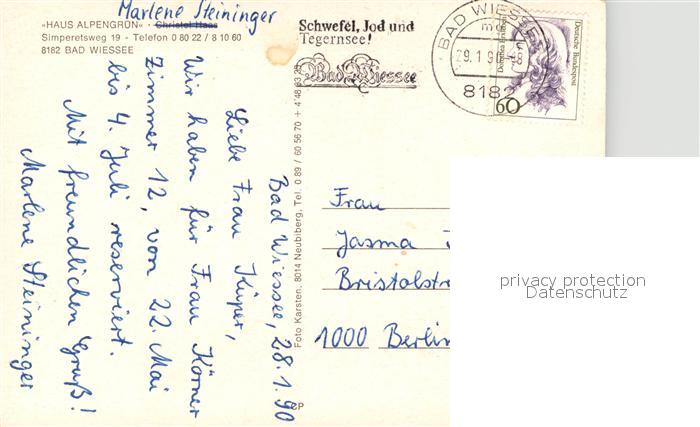 Marlene Steininger
»HAUS ALPENGRÜN« · Christel Haas
Simperetsweg 19 - Telefon 0 80 22 / 8 10 60
8182 BAD WIESSEE
Bad Wiessee, 28.1.90
Liebe Frau Küper,
Wir haben für Frau Körner
Zimmer 12, von 22. Mai
bis 4. Juli reserviert.
Mit freundlichen Gruß!
Marlene Steininger
Foto Karsten, 8014 Neubiberg, Tel. 0 89 / 60 56 70 + 4 48 83 28
Schwefel, Jod und
Tegernsee!
Bad Wiessee
BAD WIESSEE
8182
Deutsche Bundespost
60
Frau
Jasma
Bristolstr
1000 Berlin
privacy protection
Datenschutz